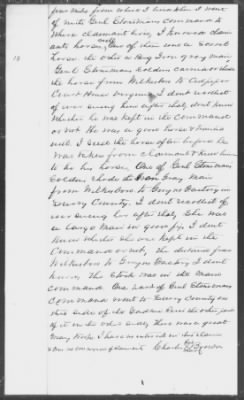 few miles from where I lived then I went
with Genl Stonemans command &
where claimant lives, I know claim
ants horses, One of them was a sorrel
13 horse the other a Gray Iron gray mare,
Genl Stonemans soldiers carried
the horse from Wilkesboro to
Court House Virginia, I dont recollect
of ever seeing him after that, dont know
whether he was kept in the command
or not. He was a good horse &
well. I seed the horse after before he
was taken from claimant & knew him
to be his horse, One of Genl Stonemans
soldiers rode the Iron Gray Mare
from Wilkesboro to Factory in
Surry County. I dont recollect of
ever seeing her after that, She was
a large Mare in good fix, I dont
know whether she was kept in the
Command or not, the distance from
Wilkesboro to Factory I dont
know, The Stock was in the Main
command. One part of Genl Stonemans
command went to Surry County on
this side of the Yadkin River the other part
of it on the other side, There was a great
many troops I have no interest in this claim
& am no of claimant Charles his mark